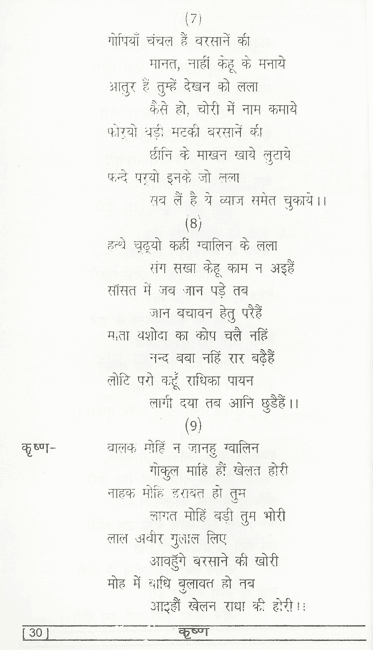 (7)
गोपियाँ चंचल हैं बरसानें की
मानत, नाहीं केहू के मनाये
आतुर हैं तुम्हें देखन को लला
कैसे हो, चोरी में नाम कमाये
फोर्‌यो धड़ी मटकी बरसानें की
छीनि के माखन खाये लुटाये
फन्दे पर्‌यो इनके जो लला
सब लैं है ये व्याज समेत चुकाये।।
(8)
हत्थे चढ्यो कहीं ग्वालिन के लला
संग सखा केहू काम न अइहैं
साँसत में जब जान पड़े तब
जान बचावन हेतु परैहैं
माता यशोदा का कोप चलै नहिं
नन्द बबा नहिं रार बढ़ैहैं
लोटि परो कहूँ राधिका पायन
लागी दया तब आनि छुडैहैं।।
(9)
कृष्ण- बालक मोहिं न जानहु ग्वालिन
गोकुल माहि हौं खेलत होरी
नाहक मोहि डरावत हो तुम
लागत मोहिं बड़ी तुम भोरी
लाल अबीर गुलाल लिए
आवहुँगे बरसाने की खोरी
मोह में बाधि बुलावत हो तब
आइहौं खेलन राधा की होरी।।
[30] कृष्ण